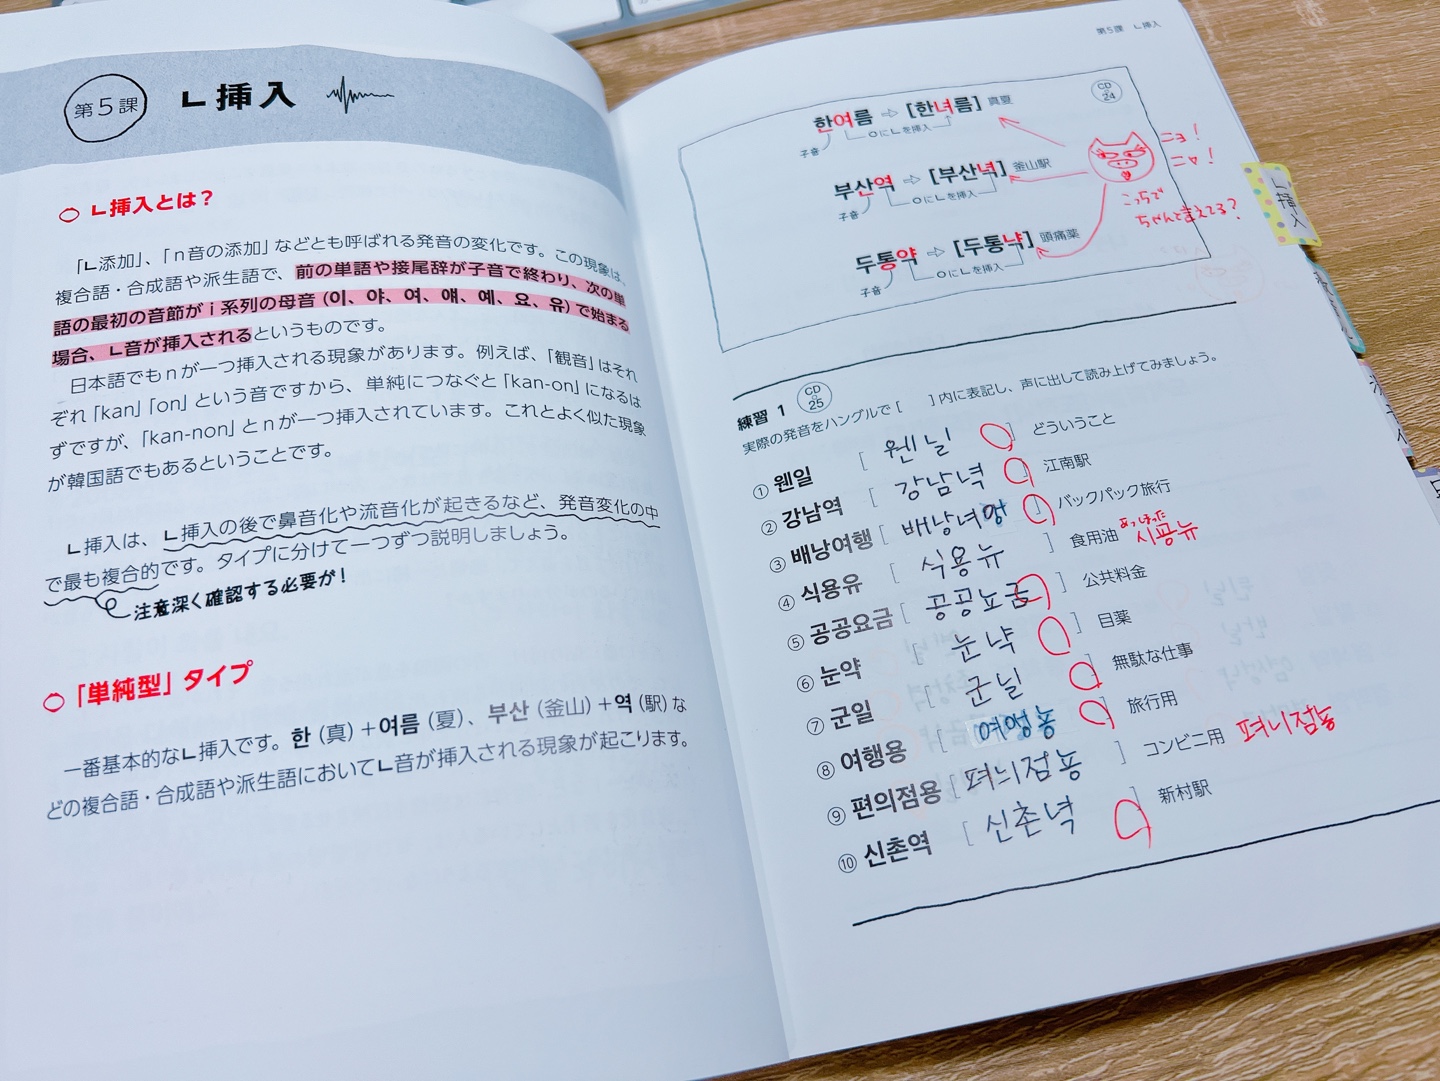 第5課 ㄴ挿入
ㄴ挿入とは?
「ㄴ添加」、「n音の添加」などとも呼ばれる発音の変化です。この現象は、
複合語・合成語や派生語で、前の単語や接尾辞が子音で終わり、次の単
語の最初の音節がi系列の母音(이、야、여、얘、예、요、유)で始まる
場合、ㄴ音が挿入されるというものです。
日本語でもnが一つ挿入される現象があります。例えば、「観音」はそれ
ぞれ「kan」「on」という音ですから、単純につなぐと「kan-on」になるは
ずですが、「kan-non」とnが一つ挿入されています。これとよく似た現象
が韓国語でもあるということです。
ㄴ挿入は、ㄴ挿入の後で鼻音化や流音化が起きるなど、発音変化の中
で最も複合的です。タイプに分けて一つずつ説明しましょう。
注意深く確認する必要が!
「単純型」タイプ
一番基本的なㄴ挿入です。한(真)+여름(夏)、부산(釜山)+역(駅)な
どの複合語・合成語や派生語においてㄴ音が挿入される現象が起こります。
第5課 ㄴ挿入
CD 24
한여름 ⇨ [한녀름] 真夏
子音 ㅇにㄴを挿入
부산역 ⇨ [부산녁] 釜山駅
子音 ㅇにㄴを挿入
두통약 ⇨ [두통냑] 頭痛薬
子音 ㅇにㄴを挿入
ニョ!
ニャ!
こっちで
ちゃんと言えてる?
ㄴ挿入
練習 1 CD 25
実際の発音をハングルで[ ]内に表記し、声に出して読み上げてみましょう。
① 웬일 [ 웬닐 ] どういうこと
② 강남역 [ 강남녁 ] 江南駅
③ 배낭여행 [ 배낭녀앵 ] バックパック旅行
④ 식용유 [ 식용뉴 ] 食用油 시굥뉴
⑤ 공공요금 [ 공공뇨금 ] 公共料金
⑥ 눈약 [ 눈냑 ] 目薬
⑦ 군일 [ 군닐 ] 無駄な仕事
⑧ 여행용 [ 여앵뇽 ] 旅行用
⑨ 편의점용 [ 펴늬점뇽 ] コンビニ用 펴니점뇽
⑩ 신촌역 [ 신촌녁 ] 新村駅